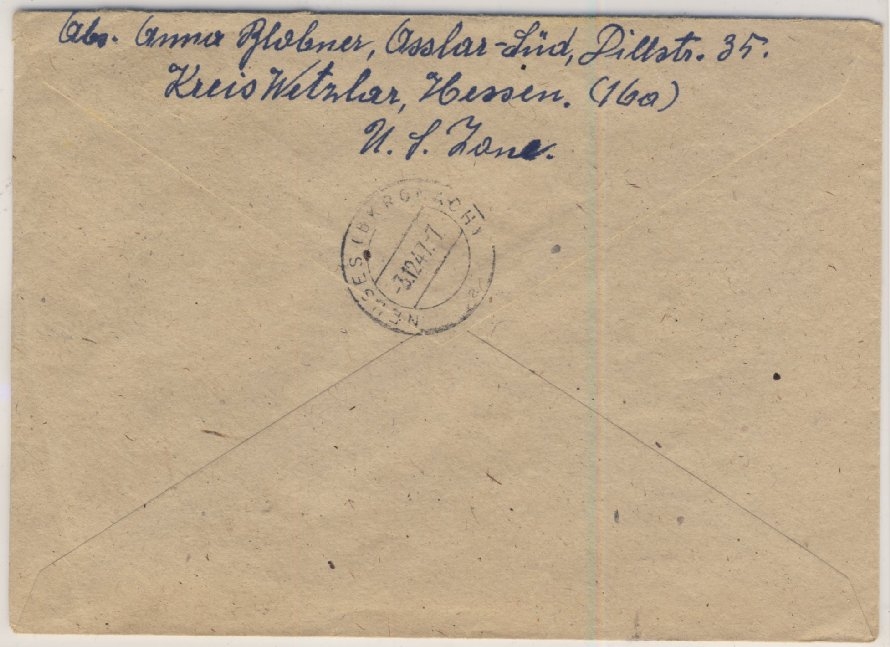 Abs. Anna Blobner, Asslar-Süd, Dillstr. 35.
Kreis Wetzlar, Hessen. (16a)
U. S. Zone.
NEUSES (B KRONACH)
-3.12.47.-7